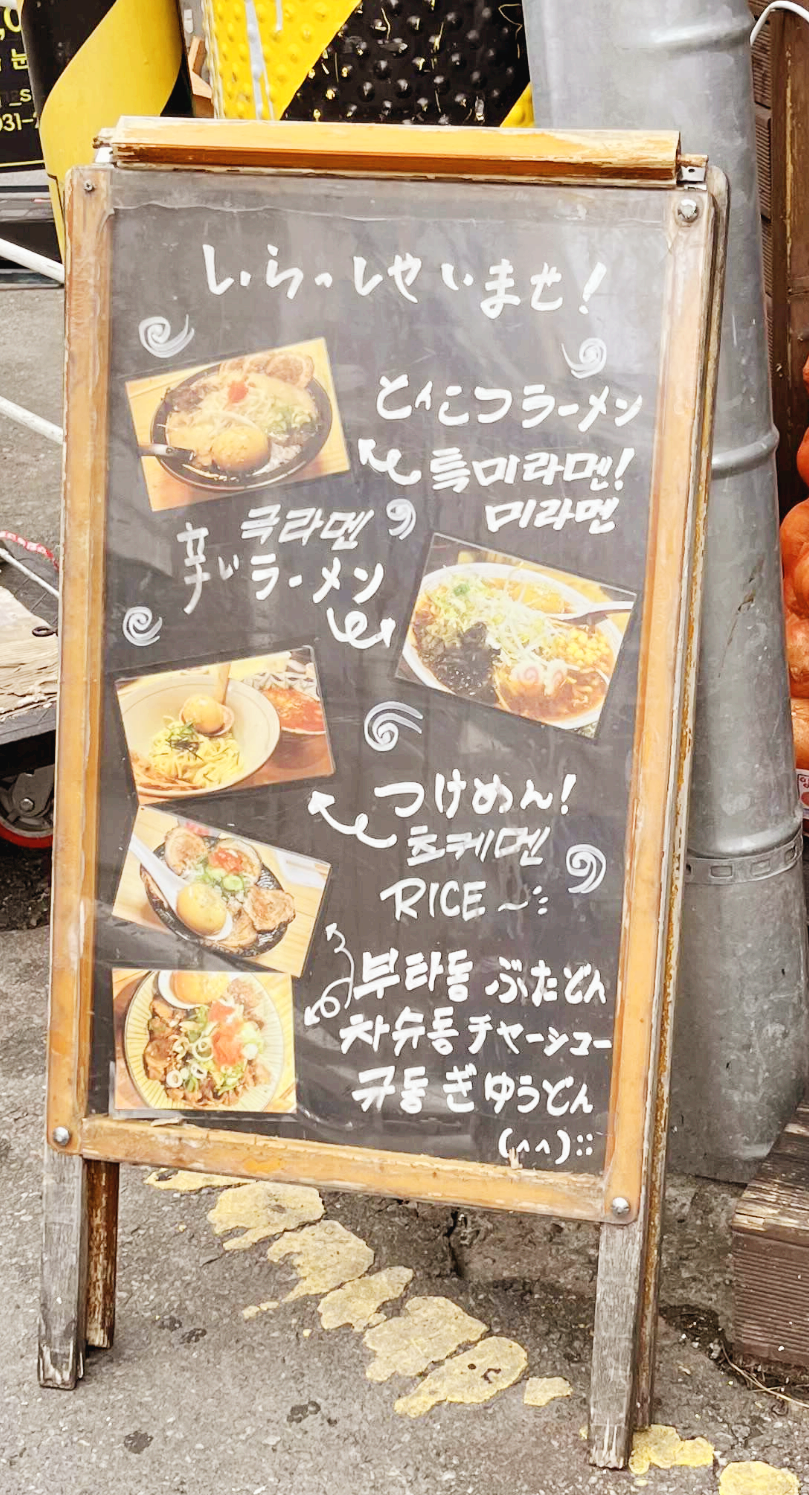 いらっしゃいませ!
とんこつラーメン
특미라멘!
미라멘
극라멘
辛いラーメン
つけめん!
츠케멘
RICE ~:
부타동 ぶたどん
차슈동 チャーシュー
규동 ぎゅうどん
(^^)::
031-